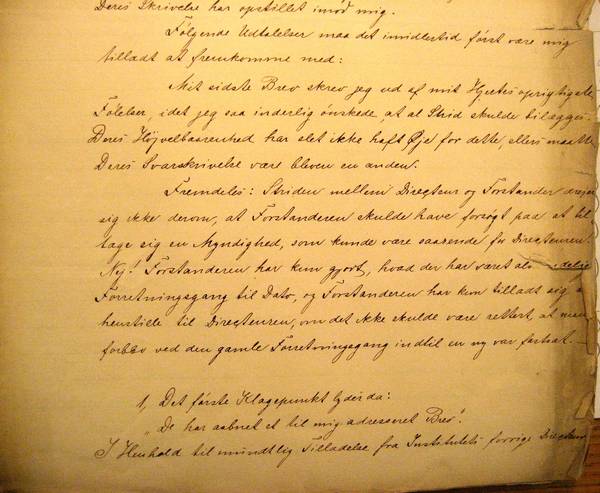 Deres Skrivelse har opstillet imod mig.
Følgende Udtalelser maa det imidlertid først være mig
tilladt at fremkomme med:
Mit sidste Brev skrev jeg ud af mit Hjertes oprigtigste
Følelser, idet jeg saa inderlig ønskede, at al Strid skulde bilægges.
Deres Højvelbaarenhed har slet ikke haft Øje for dette, ellers maatte
Deres Svarskrivelse være bleven en anden.
Fremdeles: Striden mellem Directeur og Forstander drejer
sig ikke derom, at Forstanderen skulde have forsøgt paa at til
tage sig en Myndighed, som kunde være saarende for Directeuren.
Nej! Forstanderen har kun gjort, hvad der har været al
Forretningsgang til Dato, og Forstanderen har kun tilladt sig
henstille til Directeuren, om det ikke skulde være rettest, at man
forblev ved den gamle Forretningsgang indtil en ny var fastsat.
1, Det første Klagepunkt lyder da:
"De har aabnet et til mig adresseret Brev".
I Henhold til mundtlig Tilladelse fra Institutets forrige Directeur